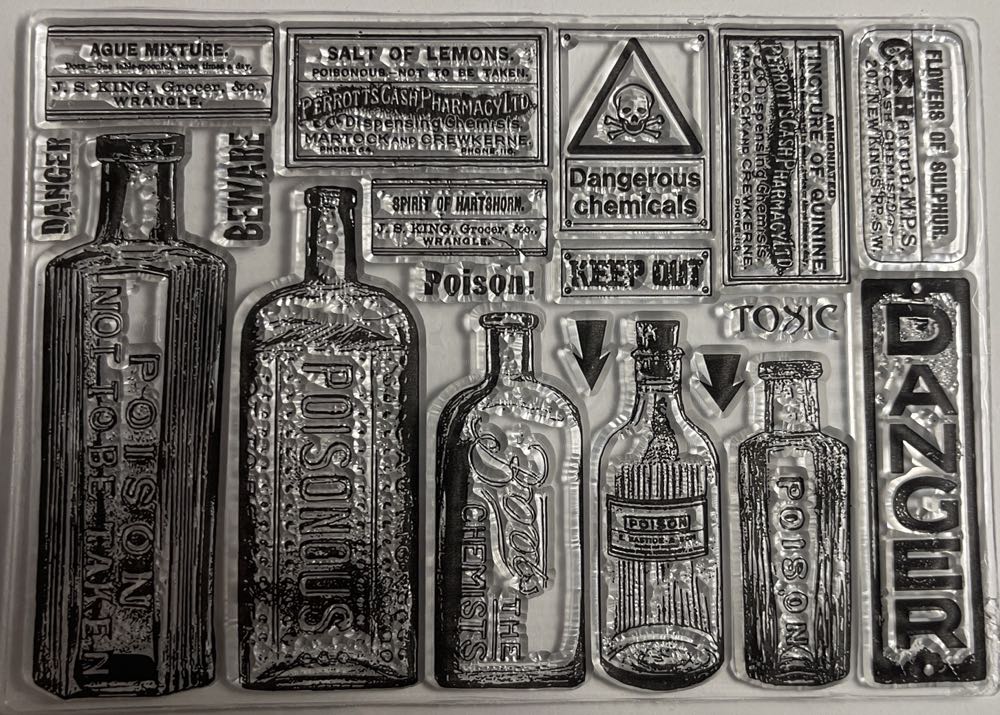 AGUE MIXTURE.
Dose:—One table-spoonful, three times a day.
J. S. KING, Grocer, &c.,
WRANGLE.
SALT OF LEMONS.
POISONOUS.-NOT TO BE TAKEN.
PERROTT'S CASH PHARMACY LTD.
Dispensing Chemists,
MARTOCK AND CREWKERNE.
PHONE: 64. PHONE: 116.
Dangerous
chemicals
AMMONIATED
TINCTURE OF QUININE.
PERROTT'S CASH PHARMACY LTD.
Dispensing Chemists,
MARTOCK AND CREWKERNE.
FLOWERS OF SULPHUR.
M.P.S
CASH CHEMIST
NEW KINGS RD. S.W.
DANGER
BEWARE
SPIRIT OF HARTSHORN.
J. S. KING, Grocer, &c.,
WRANGLE.
KEEP OUT
Poison!
TOXIC
POISON
NOT TO BE TAKEN
POISONOUS
Boots
THE
CHEMISTS
POISON
POISON
DANGER